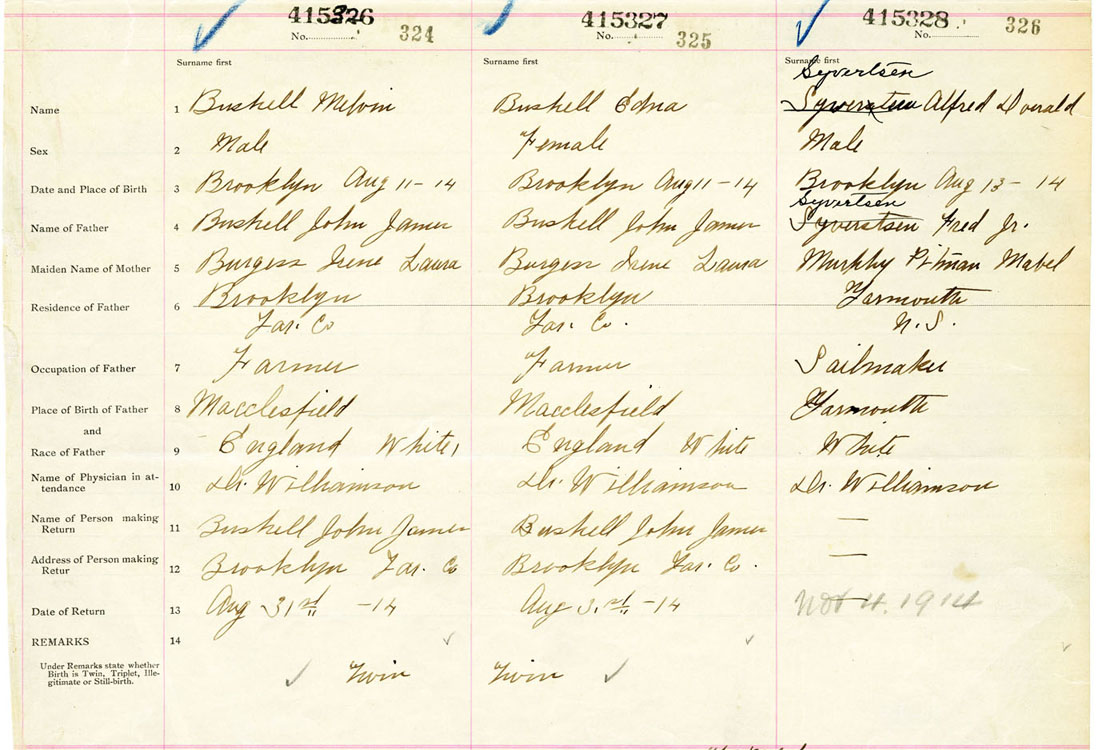 415326 415327 415328
No. 324 No. 325 No. 326
Surname first Surname first Surname first
Syvertsen
Name 1 Bushell Melvin Bushell Edna Alfred Donald
Sex 2 Male Female Male
Date and Place of Birth 3 Brooklyn Aug 11-14 Brooklyn Aug 11-14 Brooklyn Aug 13-14
Syvertsen
Name of Father 4 Bushell John James Bushell John James Syverstsen Fred Jr.
Maiden Name of Mother 5 Burgess Irene Laura Burgess Irene Laura Murphy Pitman Mabel
Residence of Father 6 Brooklyn Brooklyn Yarmouth
Yar. Co Yar. Co. N.S.
Occupation of Father 7 Farmer Farmer Sailmaker
Place of Birth of Father 8 Macclesfield Macclesfield Yarmouth
and
Race of Father 9 England White England White White
Name of Physician in at-
tendance 10 Dr. Williamson Dr. Williamson Dr. Williamson
Name of Person making
Return 11 Bushell John James Bushell John James —
Address of Person making
Retur 12 Brooklyn Yar. Co Brooklyn Yar. Co. —
Date of Return 13 Aug 31st -14 Aug 31st -14 Nov 4. 1914
REMARKS 14
Under Remarks state whether
Birth is Twin, Triplet, Ille-
gitimate or Still-birth.
Twin Twin